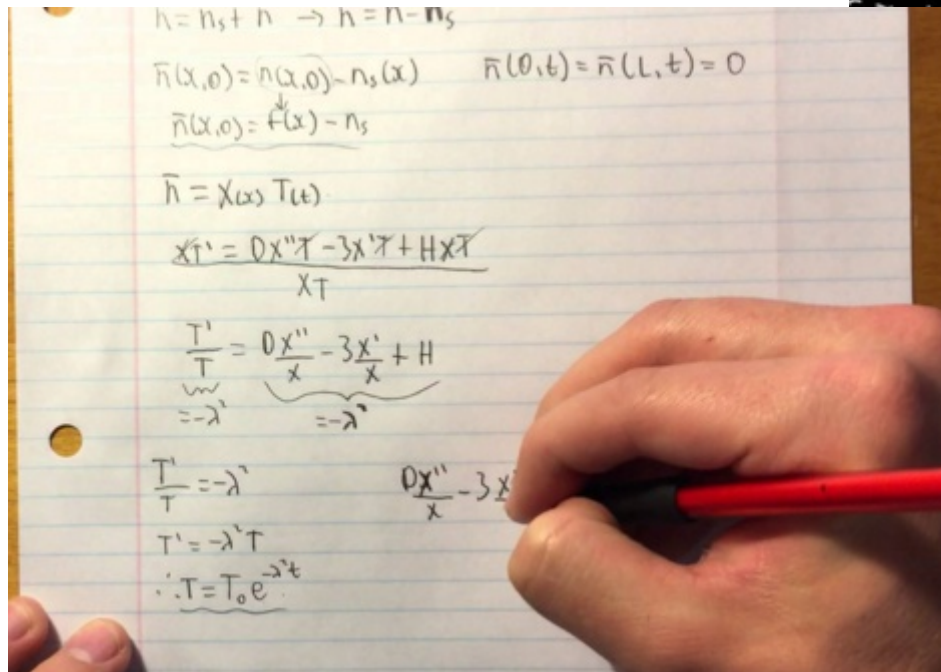 n = n_s + n̄ → n̄ = n - n_s
n̄(x,0) = n(x,0) - n_s(x) n̄(0,t) = n̄(L,t) = 0
↓
n̄(x,0) = f(x) - n_s
n̄ = X(x) T(t)
XT' = DX''T - 3X'T + HXT
XT
T'/T = DX''/X - 3X'/X + H
= -λ² = -λ²
T'/T = -λ² DX''/X - 3X'
T' = -λ²T
∴ T = T₀e^(-λ²t)